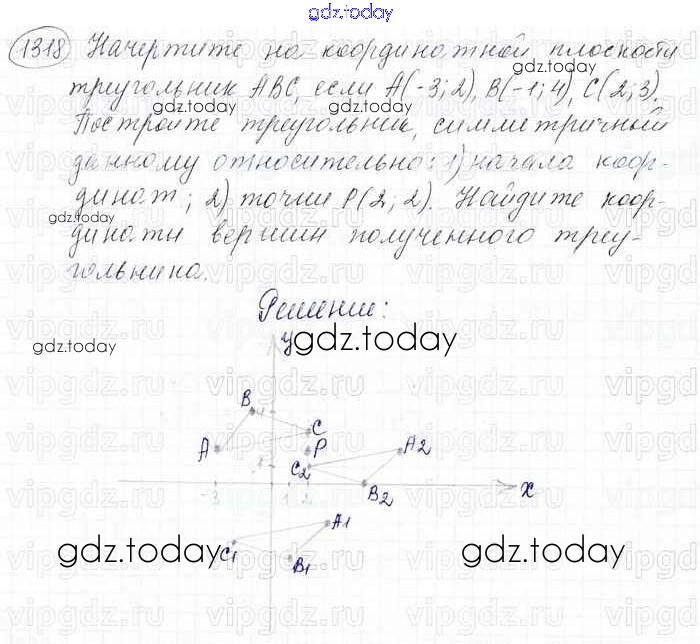 gdz.today
1318 Начертите на координатной плоскости
gdz.today
треугольник АВС, если А(-3; 2), В(-1; 4), С(2; 3).
gdz.today
Постройте треугольник, симметричный
данному относительно: 1) начала коор-
динат; 2) точки Р(2; 2). Найдите коор-
gdz.today
динаты вершин полученного треу-
гольника.
vipgdz.ru
Решение:
gdz.today
y
gdz.today
gdz.today
B
4
C
A
P
A2
1
C2
-3
1
2
B2
x
A1
C1
B1
gdz.today
gdz.today